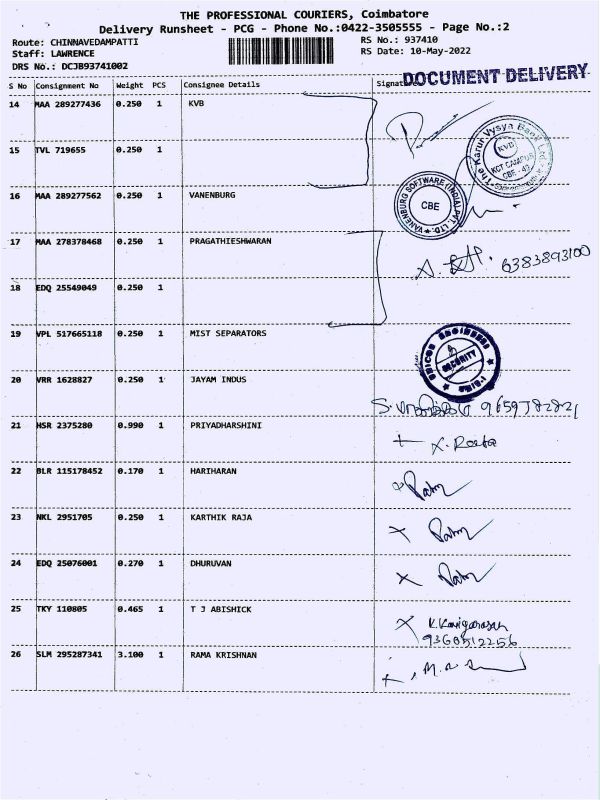 THE PROFESSIONAL COURIERS, Coimbatore
Delivery Runsheet - PCG - Phone No.:0422-3505555 - Page No.:2
Route: CHINNAVEDAMPATTI
RS No.: 937410
Staff: LAWRENCE
RS Date: 10-May-2022
DRS No.: DCJB93741002
DOCUMENT DELIVERY
S No Consignment No Weight PCS Consignee Details Signature
14 MAA 289277436 0.250 1 KVB
The Karur Vysya Bank Ltd.
KVB
KCT CAMPUS
CBE - 43
15 TVL 719655 0.250 1
16 MAA 289277562 0.250 1 VANENBURG
VANENBURG SOFTWARE (INDIA) PVT. LTD.
CBE
17 MAA 278378468 0.250 1 PRAGATHIESHWARAN
6383893100
18 EDQ 25549049 0.250 1
19 VPL 517665118 0.250 1 MIST SEPARATORS
SECURITY
20 VRR 1628827 0.250 1 JAYAM INDUS
9659782821
21 HSR 2375280 0.990 1 PRIYADHARSHINI
22 BLR 115178452 0.170 1 HARIHARAN
23 NKL 2951705 0.250 1 KARTHIK RAJA
24 EDQ 25076001 0.270 1 DHURUVAN
25 TKY 110805 0.465 1 T J ABISHICK
K.Kavigarasan
9360512256
26 SLM 295287341 3.100 1 RAMA KRISHNAN